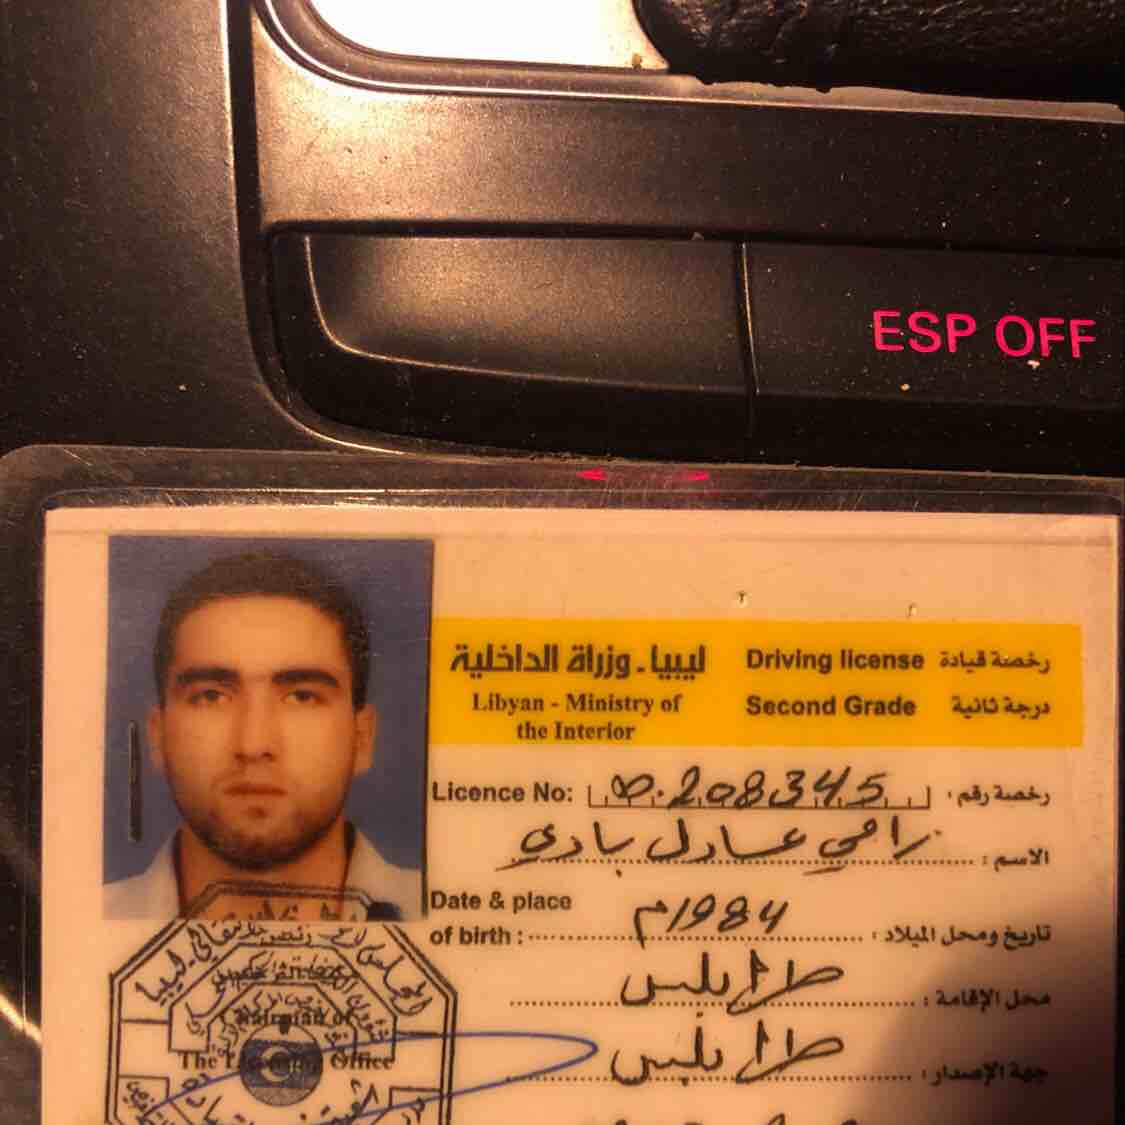 ESP OFF
ليبيا - وزراة الداخلية
Libyan - Ministry of
the Interior
Driving license رخصة قيادة
Second Grade درجة ثانية
Licence No: 208345 رخصة رقم :
الاسم : رامي عادل بادي
Date & place
of birth : 1984م تاريخ ومحل الميلاد :
محل الإقامة : طرابلس
جهة الإصدار : طرابلس
المجلس الانتقالي ليبيا
The Licensing Office